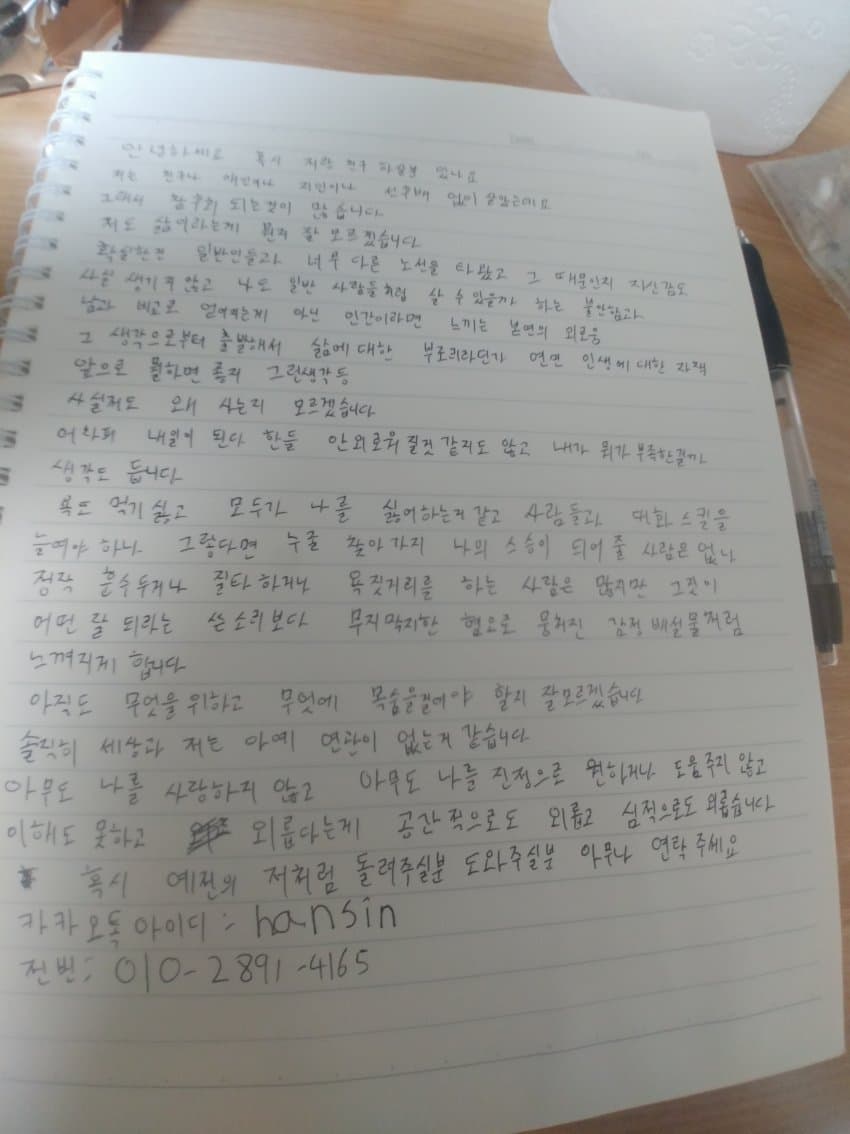 안녕하세요 혹시 저랑 친구 하실분 있나요
저는 친구나 애인이나 지인이나 선후배 없이 살았는데요
그래서 참 후회 되는것이 많습니다
저도 삶이라는게 뭔지 잘 모르겠습니다
확실한건 일반인들과 너무 다른 노선을 타왔고 그 때문인지 자신감도
사실 생기지 않고 나도 일반 사람들처럼 살 수 있을까 하는 불안함과
남과 비교로 얻어지는게 아닌 인간이라면 느끼는 본연의 외로움
그 생각으로부터 출발해서 삶에 대한 부조리라던가 연연 인생에 대한 자책
앞으로 뭘하면 좋지 그런생각등
사실저도 왜 사는지 모르겠습니다
어차피 내일이 된다 한들 안외로워 질것 같지도 않고 내가 뭐가 부족한걸까
생각도 듭니다
욕도 먹기 싫고 모두가 나를 싫어하는거 같고 사람들과 대화 스킬을
늘여야 하나 그렇다면 누굴 찾아가지 나의 스승이 되어 줄 사람은 없나
정작 훈수두거나 질타하거나 욕짓거리를 하는 사람은 많지만 그것이
어떤 잘 되라는 쓴소리보다 무지막지한 혐오로 뭉쳐진 감정 배설물처럼
느껴지게 합니다
아직도 무엇을 위하고 무엇에 목숨을걸어야 할지 잘모르겠습니다
솔직히 세상과 저는 아예 연관이 없는거 같습니다
아무도 나를 사랑하지 않고 아무도 나를 진정으로 원하거나 도움주지 않고
이해도 못하고 외롭다는게 공간적으로도 외롭고 심적으로도 외롭습니다
혹시 예전의 저처럼 돌려주실분 도와주실분 아무나 연락 주세요
카카오톡 아이디 : hansin
전번: 010-2891-4165